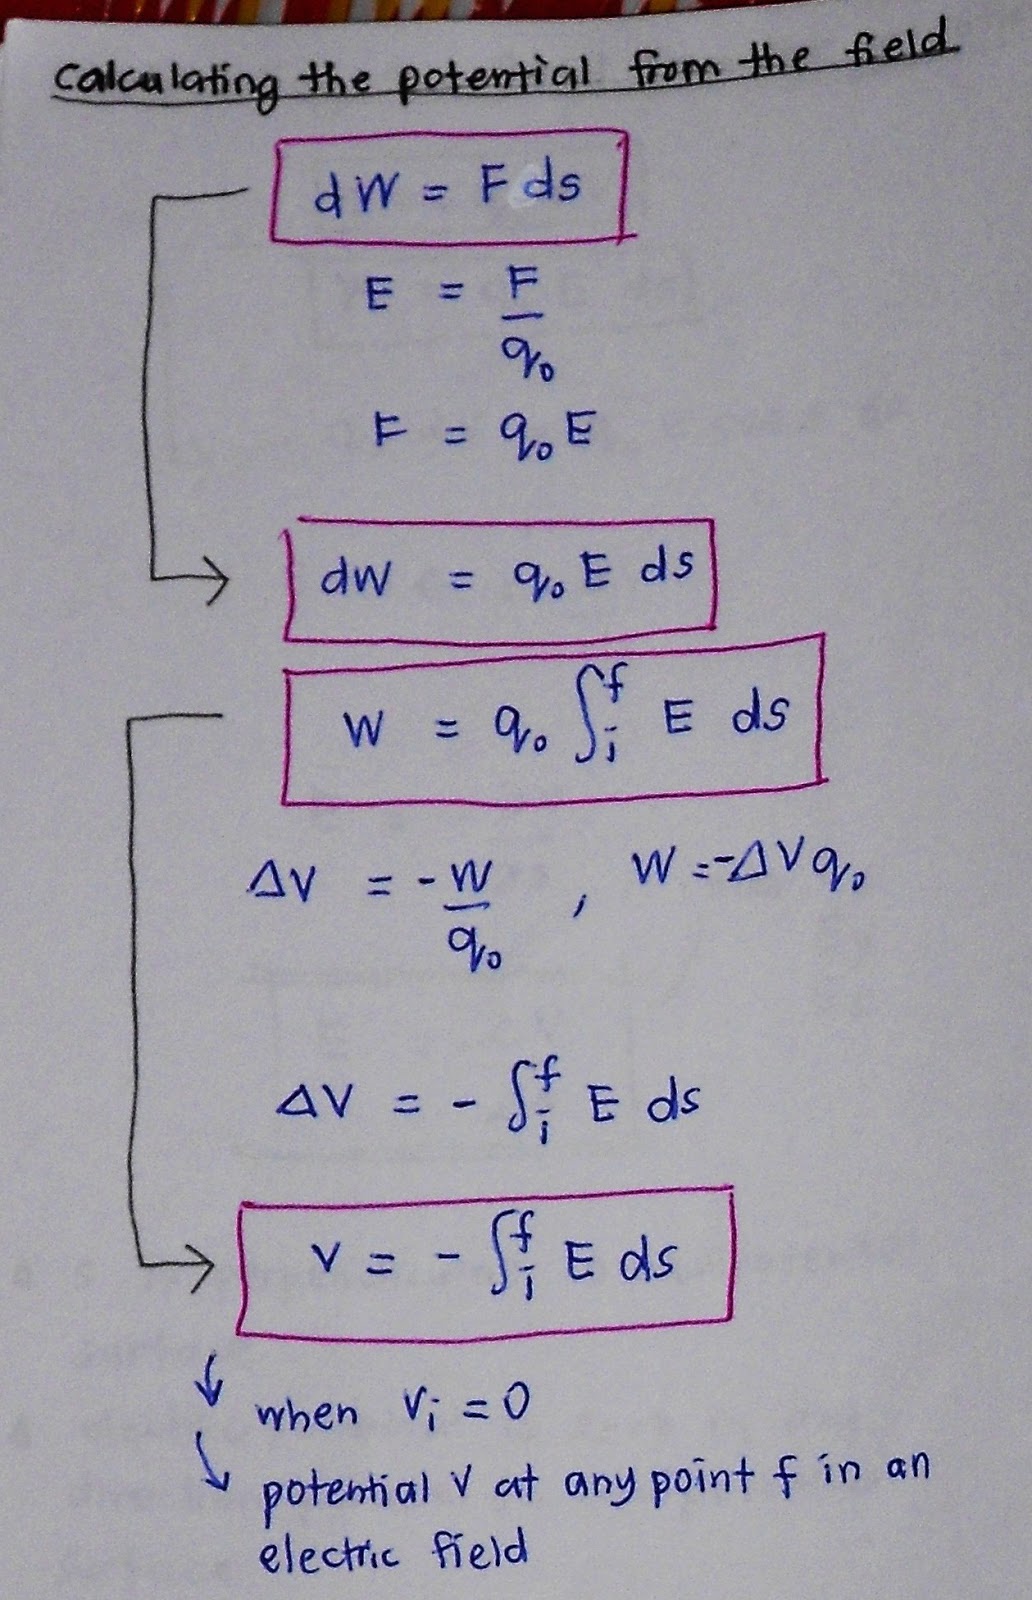 Calculating the potential from the field
dW = F ds
E = F/q₀
F = q₀ E
dW = q₀ E ds
W = q₀ ∫ᵢᶠ E ds
ΔV = -W/q₀ , W = -ΔV q₀
ΔV = - ∫ᵢᶠ E ds
V = - ∫ᵢᶠ E ds
when Vᵢ = 0
potential V at any point f in an
electric field